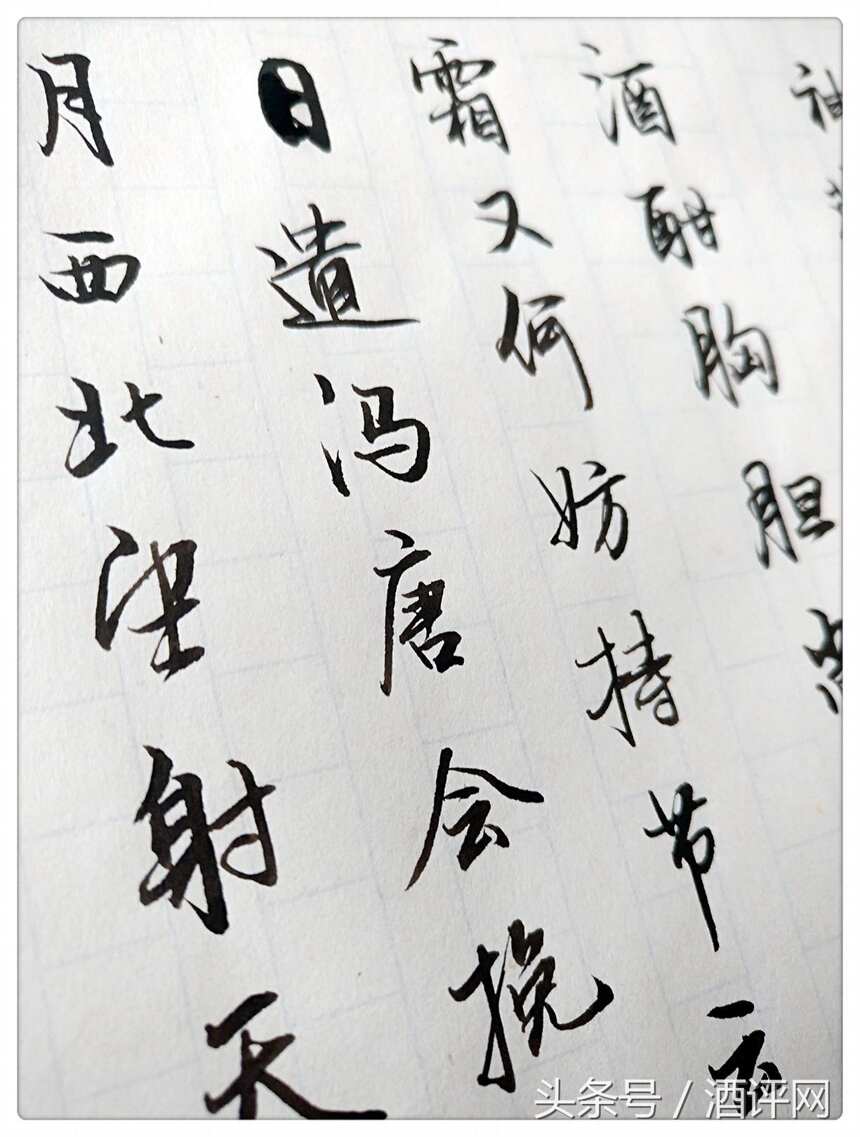 酒酣胸胆
霜又何妨持节云
日遣冯唐会挽
月西北望射天
头条号 / 酒评网